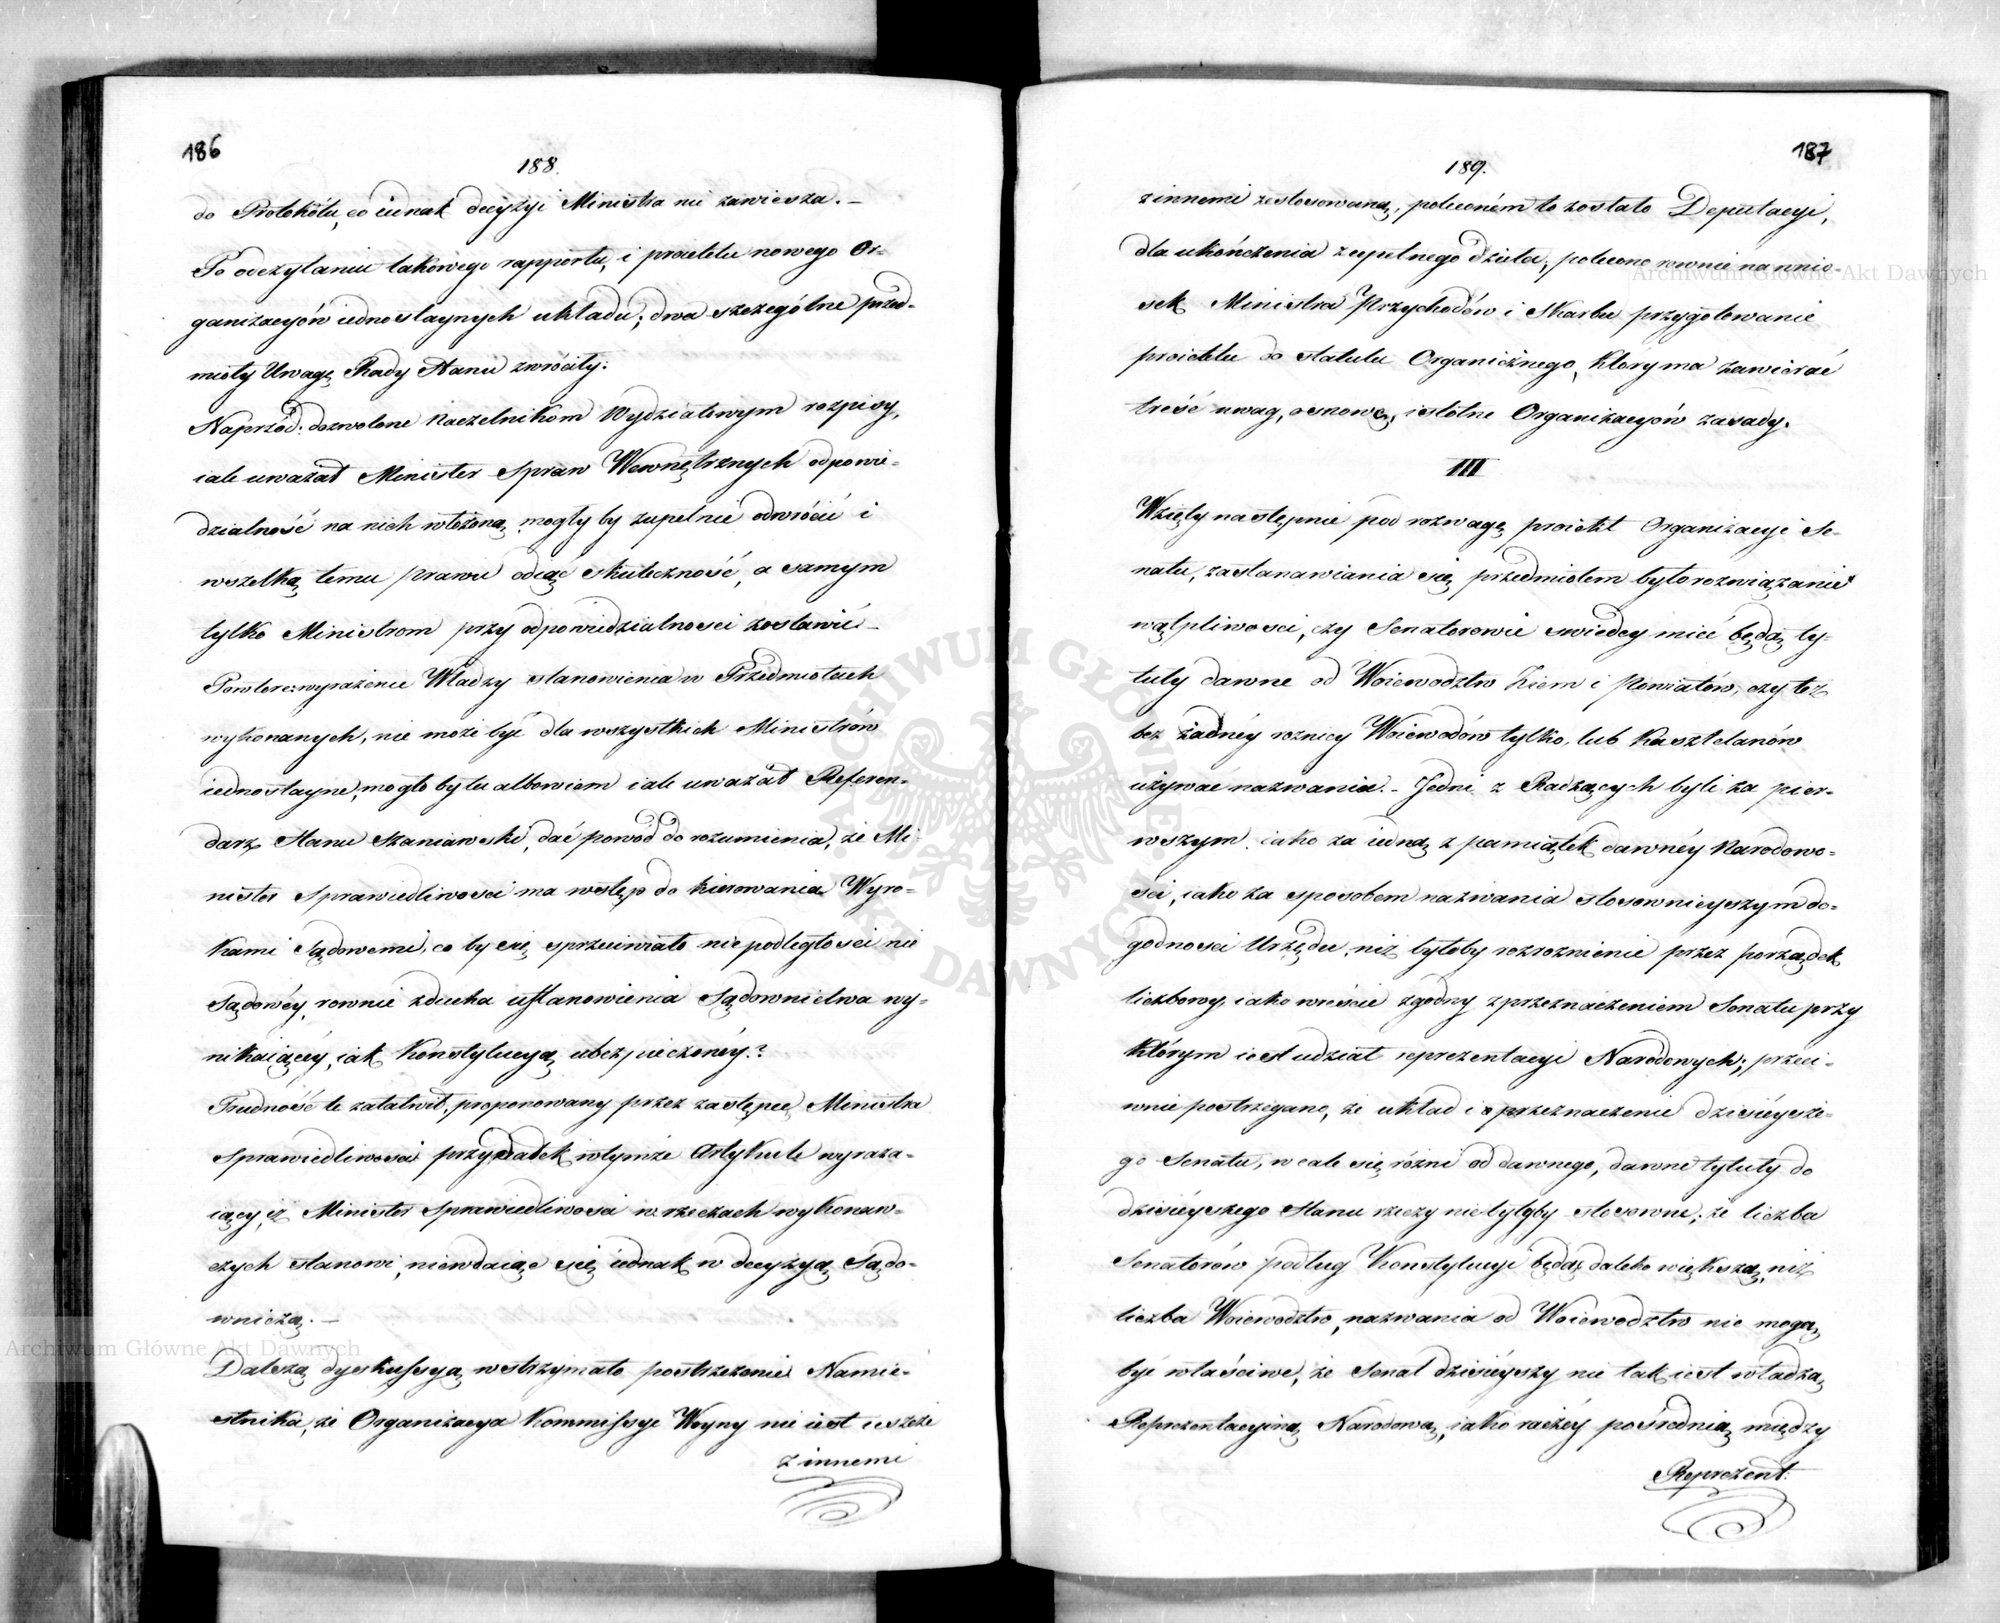 186
188.
do Protokółu, co iednak decyzyi Ministra nie zawiesza. —
Po odczytaniu takowego rapportu, i proiektu nowego Or-
ganizacyów iednostaynych układu; dwa szczególne przed-
mioty Uwagę Rady Stanu zwróciły:
Naprzód: dozwolone Naczelnikom Wydziałowym rozpisy,
iak uważał Minister Spraw Wewnętrznych odpowie-
dzialność na nich włożoną mogły by zupełnie odwrócić i
wszelką temu prawu odiąć skuteczność, a samym
tylko Ministrom przy odpowiedzialności zostawić —
Powtóre: wyrażenie Władzy stanowienia w Przedmiotach
wykonanych, nie może być dla wszystkich Ministrów
iednostayne, mogło by tu albowiem iak uważał Referen-
darz Stanu Szaniawski, dać powód do rozumienia, że Mi-
nister Sprawiedliwości ma wstęp do kierowania Wyro-
kami Sądowemi, co by się sprzeciwiało niepodległości nie
Sądowéy, rownie z ducha ustanowienia Sądownictwa wy-
nikaiącéy, iak Konstytucyą ubezpieczonéy.?
Trudność tę załatwił, proponowany przez zastępcę Ministra
Sprawiedliwości przydatek w tymże Artykule wyraża-
iący, iż Minister Sprawiedliwości w rzeczach wykonaw-
czych stanowi, niewdaiąc się iednak w decyzyą Sądo-
wniczą. —
Dalszą dyskussyą wstrzymało postrzeżenie Namie-
stnika, że Organizacya Kommissyi Woyny nie iest ieszcze
z innemi
187
189.
z innemi zestosowaną, poleconém to zostało Deputacyi,
dla ukończenia zupełnego dzieła; polecono rownie na wnio-
sek Ministra Przychodów i Skarbu przygotowanie
proiektu do statutu Organicznego, który ma zawierać
treść uwag, osnowę, istotne Organizacyów zasady.
III
Wzięty następnie pod rozwagę proiekt Organizacyi Se-
natu, zastanawiania się przedmiotem było rozwiązanie
wątpliwości, czy Senatorowie świeccy mieć będą ty-
tuły dawne od Woiewodztw Ziem i Powiatów, czy też
bez żadnéy roznicy Woiewodów tylko, lub Kasztelanów
używać nazwania. - Jedni z Radzących byli za pier-
wszym, iako za iedną z pamiątek dawnéy Narodowo-
ści, iako za sposobem nazwania stosownieyszym do-
godności Urzędu, niż byłoby rozroznienie przez porządek
liczbowy, iako wreście zgodny z przeznaczeniem Senatu przy
którym iest udział reprezentacyi Narodowych; przeci-
wnie postrzegano, że układ i przeznaczenie dzisiéysze-
go Senatu, w cale się różni od dawnego, dawne tytuły do
dzisiéyszego Stanu rzeczy nie byłyby stosowne; że liczba
Senatorów podług Konstytucyi będąc daleko większą, niż
liczba Woiewodztw, nazwania od Woiewodztw nie mogą
być właściwe, że Senat dzisiéyszy nie tak iest władzą
Reprezentacyiną Narodową, iako raczéy pośrednią między
Reprezent:
Archiwum Główne Akt Dawnych
Archiwum Główne Akt Dawnych
ARCHIWUM GŁÓWNE AKT DAWNYCH